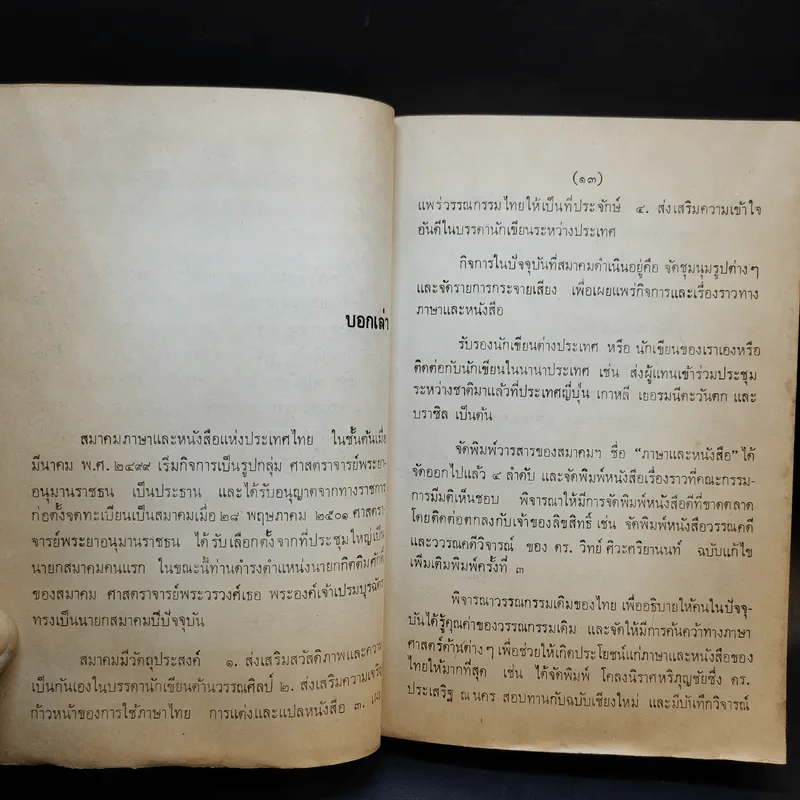 บอกเล่า
สมาคมภาษาและหนังสือแห่งประเทศไทย ในชั้นต้นเมื่อ
มีนาคม พ.ศ. ๒๔๙๙ เริ่มกิจการเป็นรูปกลุ่ม ศาสตราจารย์พระยา-
อนุมานราชธน เป็นประธาน และได้รับอนุญาตจากทางราชการ
ก่อตั้งจดทะเบียนเป็นสมาคมเมื่อ ๒๘ พฤษภาคม ๒๕๐๑ ศาสตรา-
จารย์พระยาอนุมานราชธน ได้รับเลือกตั้งจากที่ประชุมใหญ่เป็น
นายกสมาคมคนแรก ในขณะนี้ท่านดำรงตำแหน่งนายกกิตติมศักดิ์
ของสมาคม ศาสตราจารย์พระวรวงศ์เธอ พระองค์เจ้าเปรมบุรฉัตร
ทรงเป็นนายกสมาคมปีปัจจุบัน
สมาคมมีวัตถุประสงค์ ๑. ส่งเสริมสวัสดิภาพและความ
เป็นกันเองในบรรดานักเขียนด้านวรรณศิลป์ ๒. ส่งเสริมความเจริญ
ก้าวหน้าของการใช้ภาษาไทย การแต่งและแปลหนังสือ ๓. เผย
(๑๓)
แพร่วรรณกรรมไทยให้เป็นที่ประจักษ์ ๔. ส่งเสริมความเข้าใจ
อันดีในบรรดานักเขียนระหว่างประเทศ
กิจการในปัจจุบันที่สมาคมดำเนินอยู่คือ จัดชุมนุมรูปต่างๆ
และจัดรายการกระจายเสียง เพื่อเผยแพร่กิจการและเรื่องราวทาง
ภาษาและหนังสือ
รับรองนักเขียนต่างประเทศ หรือ นักเขียนของเราเองหรือ
ติดต่อกับนักเขียนในนานาประเทศ เช่น ส่งผู้แทนเข้าร่วมประชุม
ระหว่างชาติมาแล้วที่ประเทศญี่ปุ่น เกาหลี เยอรมนีตะวันตก และ
บราซิล เป็นต้น
จัดพิมพ์วารสารของสมาคมฯ ชื่อ "ภาษาและหนังสือ" ได้
จัดออกไปแล้ว ๔ ลำดับ และจัดพิมพ์หนังสือเรื่องราวที่คณะกรรม-
การมีมติเห็นชอบ พิจารณาให้มีการจัดพิมพ์หนังสือดีที่ขาดตลาด
โดยติดต่อตกลงกับเจ้าของลิขสิทธิ์ เช่น จัดพิมพ์หนังสือวรรณคดี
และวรรณคดีวิจารณ์ ของ ดร. วิทย์ ศิวะศริยานนท์ ฉบับแก้ไข
เพิ่มเติมพิมพ์ครั้งที่ ๓
พิจารณาวรรณกรรมเดิมของไทย เพื่ออธิบายให้คนในปัจจุ-
บันได้รู้คุณค่าของวรรณกรรมเดิม และจัดให้มีการค้นคว้าทางภาษา
ศาสตร์ด้านต่างๆ เพื่อช่วยให้เกิดประโยชน์แก่ภาษาและหนังสือของ
ไทยให้มากที่สุด เช่น ได้จัดพิมพ์ โคลงนิราศหริภุญชัยซึ่ง ดร.
ประเสริฐ ณ นคร สอบทานกับฉบับเชียงใหม่ และมีบันทึกวิจารณ์